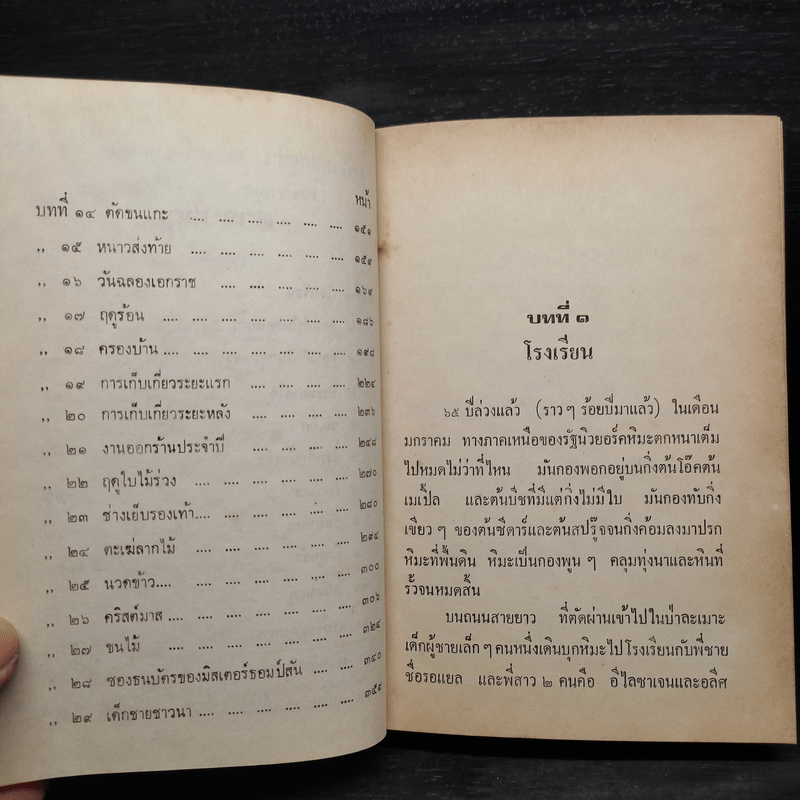 หน้า
บทที่ ๑๔ ตัดขนแกะ .... .... .... .... .... .... ๑๕๑
,, ๑๕ หนาวส่งท้าย .... .... .... .... .... ๑๕๙
,, ๑๖ วันฉลองเอกราช .... .... .... .... .... ๑๖๙
,, ๑๗ ฤดูร้อน .... .... .... .... .... .... .... ๑๘๖
,, ๑๘ ครองบ้าน .... .... .... .... .... .... .... ๑๙๘
,, ๑๙ การเก็บเกี่ยวระยะแรก .... .... .... .... ๒๒๔
,, ๒๐ การเก็บเกี่ยวระยะหลัง .... .... .... .... ๒๓๖
,, ๒๑ งานออกร้านประจำปี .... .... .... .... ๒๔๘
,, ๒๒ ฤดูใบไม้ร่วง .... .... .... .... .... .... ๒๗๐
,, ๒๓ ช่างเย็บรองเท้า.... .... .... .... .... ๒๘๐
,, ๒๔ ตะเฆ่ลากไม้ .... .... .... .... .... ๒๙๔
,, ๒๕ นวดข้าว.... .... .... .... .... .... ๓๐๐
,, ๒๖ คริสต์มาส .... .... .... .... .... .... ๓๐๖
,, ๒๗ ขนไม้ .... .... .... .... .... .... .... ๓๒๔
,, ๒๘ ซองธนบัตรของมิสเตอร์ธอมป์สัน .... .... ๓๔๐
,, ๒๙ เด็กชายชาวนา .... .... .... .... .... ๓๕๙
บทที่ ๑
โรงเรียน
๖๕ ปีล่วงแล้ว (ราว ๆ ร้อยปีมาแล้ว) ในเดือน
มกราคม ทางภาคเหนือของรัฐนิวยอร์คหิมะตกหนาเต็ม
ไปหมดไม่ว่าที่ไหน มันกองพอกอยู่บนกิ่งต้นโอ๊คต้น
เมเปิ้ล และต้นบีชที่มีแต่กิ่งไม่มีใบ มันกองทับกิ่ง
เขียว ๆ ของต้นซีดาร์และต้นสปรู๊จจนกิ่งค้อมลงมาปรก
หิมะที่พื้นดิน หิมะเป็นกองพูน ๆ คลุมทุ่งนาและหินที่
รั้วจนหมดสิ้น
บนถนนสายยาว ที่ตัดผ่านเข้าไปในป่าละเมาะ
เด็กผู้ชายเล็ก ๆ คนหนึ่งเดินบุกหิมะไปโรงเรียนกับพี่ชาย
ชื่อรอแยล และพี่สาว ๒ คนคือ อีไลซาเจนและอลิศ